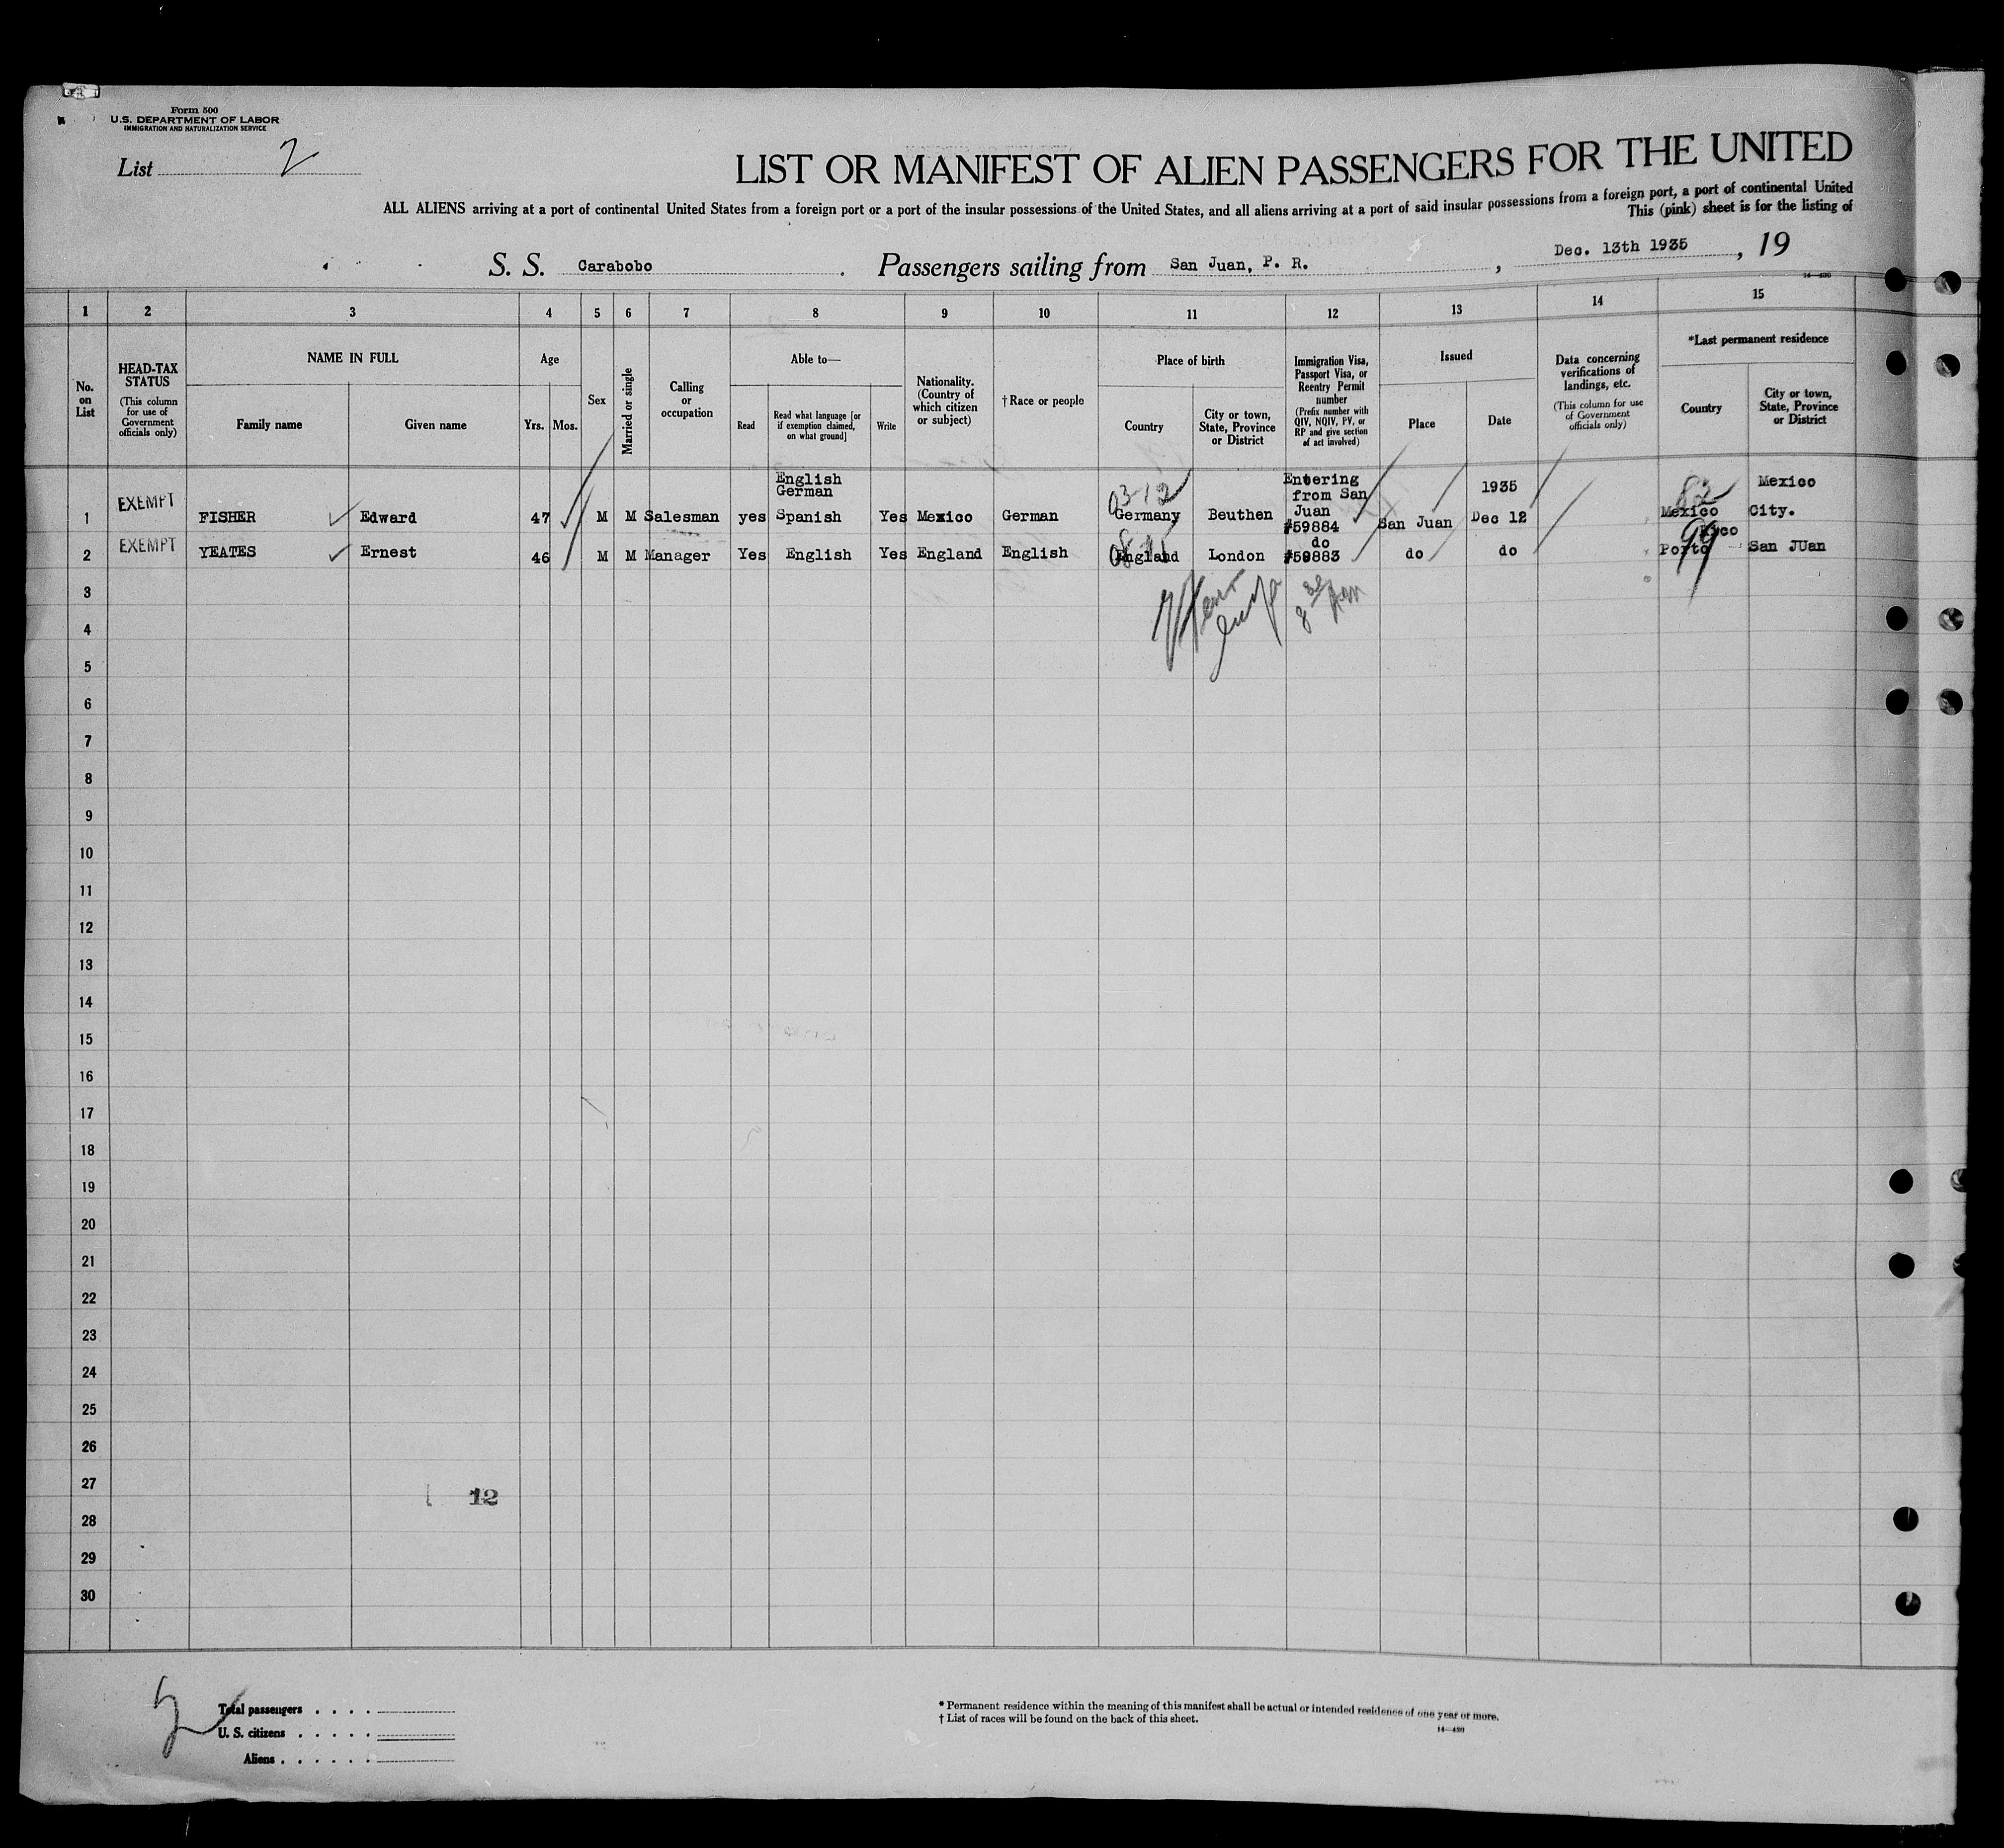 Form 500
U.S. DEPARTMENT OF LABOR
IMMIGRATION AND NATURALIZATION SERVICE
List 2
LIST OR MANIFEST OF ALIEN PASSENGERS FOR THE UNITED
ALL ALIENS arriving at a port of continental United States from a foreign port or a port of the insular possessions of the United States, and all aliens arriving at a port of said insular possessions from a foreign port, a port of continental United
This (pink) sheet is for the listing of
S. S. Carabobo . Passengers sailing from San Juan, P. R. , Dec. 13th 1935 , 19
14—490
1 2 3 4 5 6 7 8 9 10 11 12 13 14 15
No. on List
HEAD-TAX STATUS
(This column for use of Government officials only)
NAME IN FULL
Family name
Given name
Age
Yrs. Mos.
Sex
Married or single
Calling or occupation
Able to—
Read
Read what language [or if exemption claimed, on what ground]
Write
Nationality. (Country of which citizen or subject)
† Race or people
Place of birth
Country
City or town, State, Province or District
Immigration Visa, Passport Visa, or Reentry Permit number
(Prefix number with QIV, NQIV, PV, or RP and give section of act involved)
Issued
Place
Date
Data concerning verifications of landings, etc.
(This column for use of Government officials only)
*Last permanent residence
Country
City or town, State, Province or District
1 EXEMPT FISHER Edward 47 M M Salesman yes English German Spanish Yes Mexico German 03-12 Germany Beuthen Entering from San Juan #59884 San Juan 1935 Dec 12 82 Mexico Mexico City.
2 EXEMPT YEATES Ernest 46 M M Manager Yes English Yes England English England London do #59883 do do 99 Porto Rico San JUan
3
4
5
6
7
8
9
10
11
12
13
14
15
16
17
18
19
20
21
22
23
24
25
26
27
12
28
29
30
Total passengers . . . .
U. S. citizens . . . . .
Aliens . . . . . .
* Permanent residence within the meaning of this manifest shall be actual or intended residence of one year or more.
† List of races will be found on the back of this sheet.
14—490